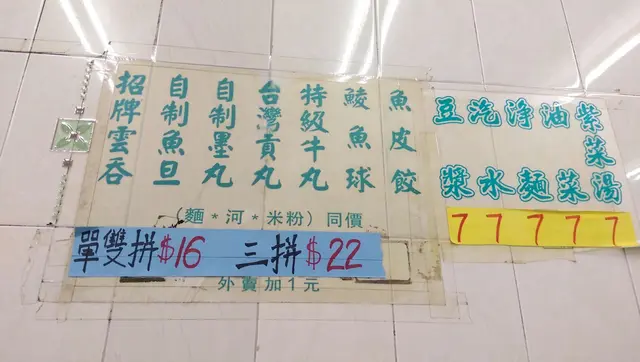 魚皮餃
鯪魚球
特級牛丸
台灣貢丸
自制墨丸
自制魚旦
招牌雲吞
(麵*河*米粉)同價
單雙拼$16 三拼$22
外賣加1元
紫菜湯
油菜
淨麵
汽水
豆漿
7 7 7 7 7